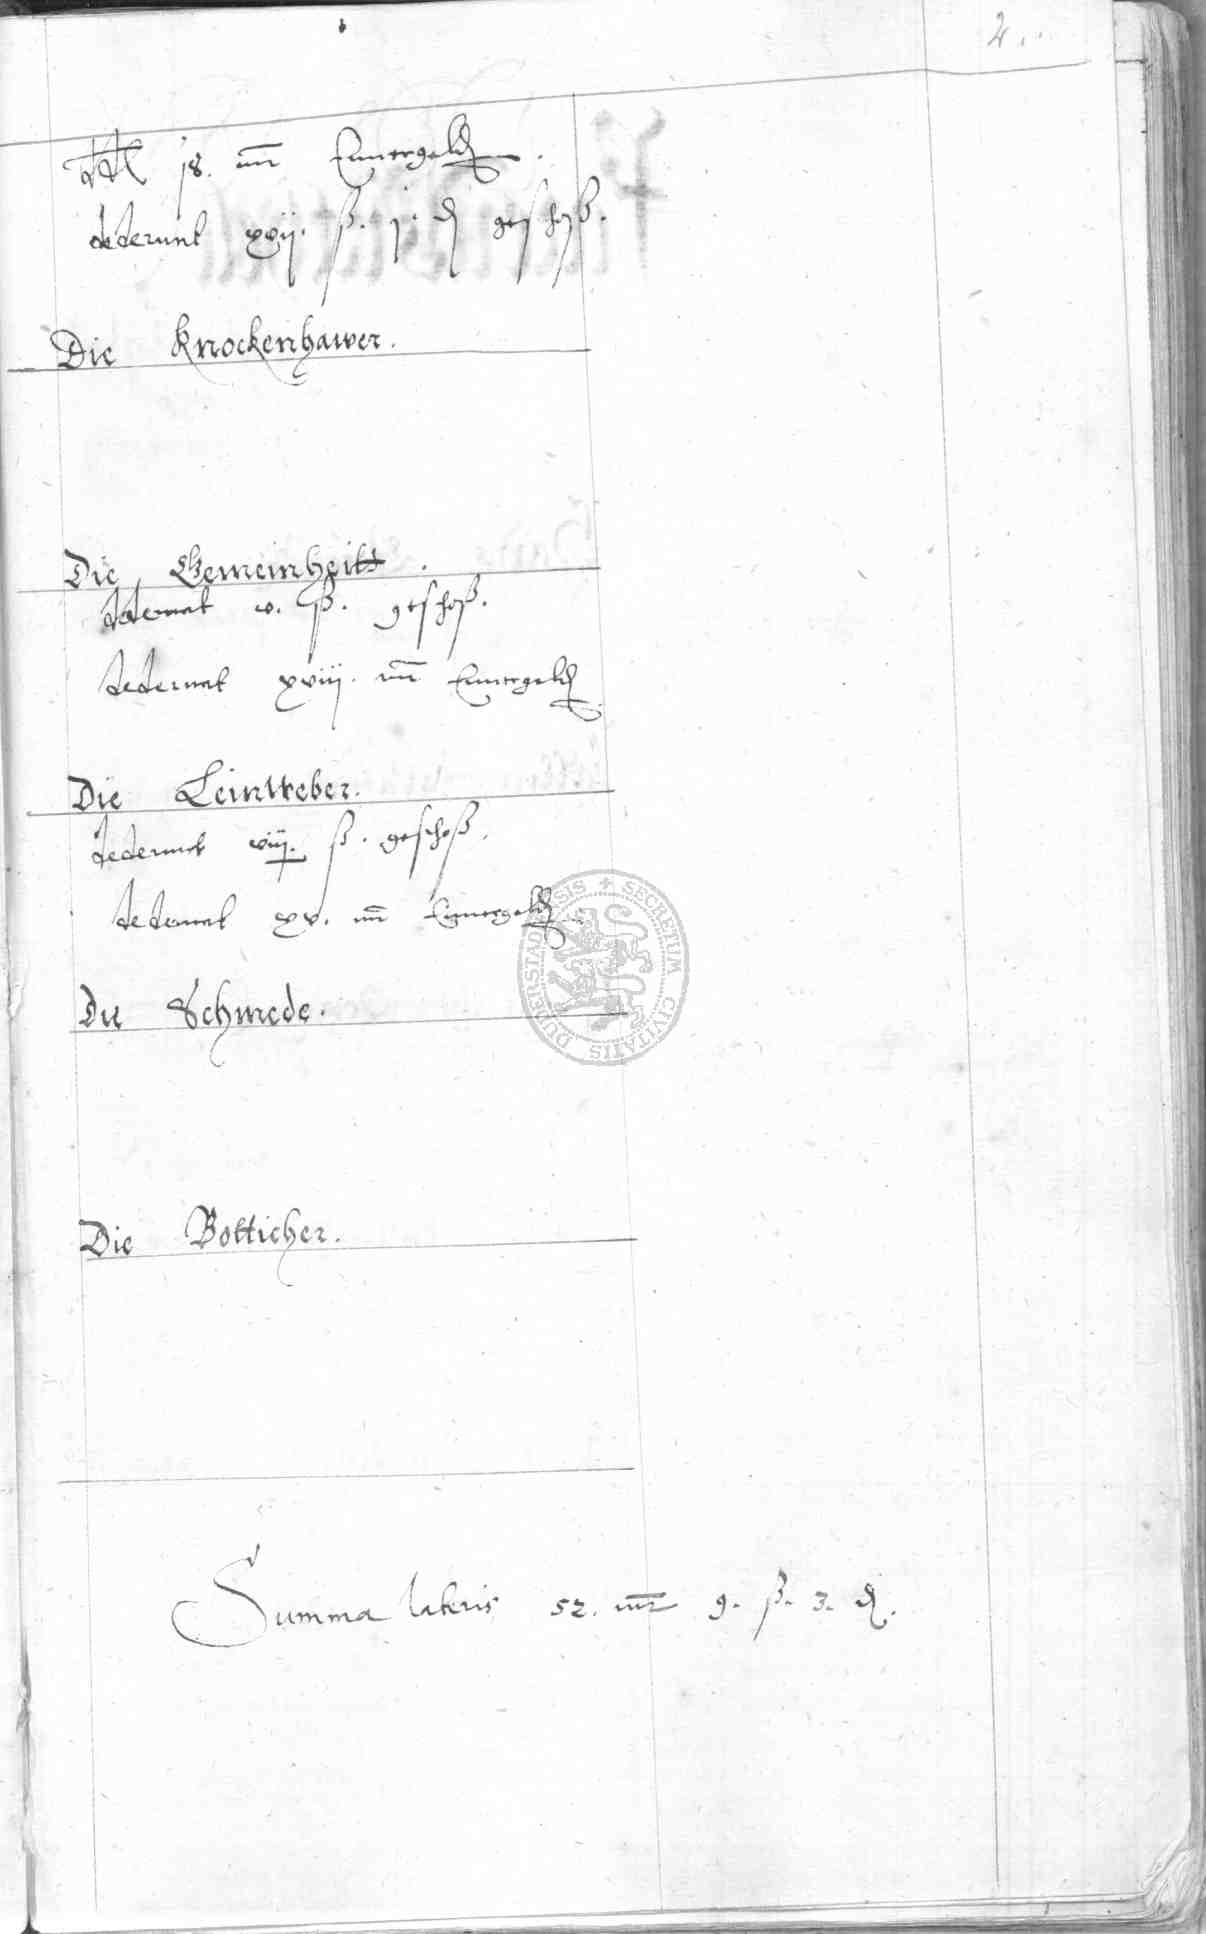 2
ddt 18. mr Emergeldt.
dederunt xvij. ß. j. ₰ geschoß.
Die Knockenhawer.
Die Gemeinheitt.
dederunt v. ß. geschoß.
dederunt xviij. mr Emergeldt
Die Leinweber.
dederunt viij. ß. geschoß.
dederunt xv. mr Emergeldt
Die Schmede.
Die Botticher.
Summa lateris 52. mr 9. ß. 3. ₰.
SECRETUM CIVITATIS DUDERSTADENSIS